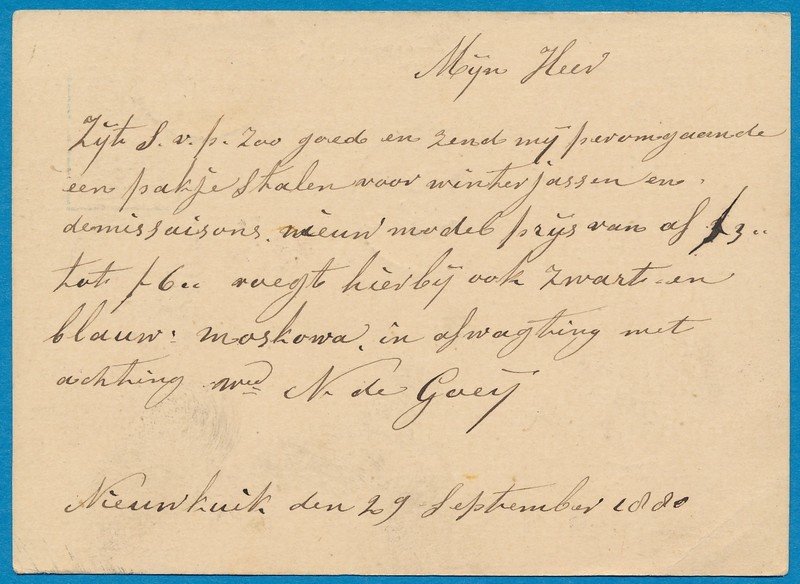 Mijn Heer
Zijt S.v.p. zoo goed en zend mij peromgaande
een pakje Stalen voor winterjassen en
demissaisons. nieuw model prijs van af f 3 „
tot f 6 „ voegt hierbij ook zwart en
blauw: moskowa. in afwagting met
achting wed N. de Goeij
Nieuwkuik den 29 September 1880